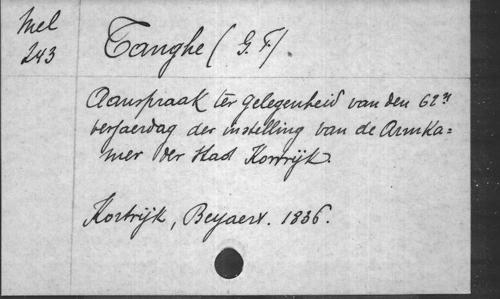 Mel
243
Tanghe (G. F.)
Aanspraak ter gelegenheid van den 62n
verjaerdag der instelling van de Armka=
mer der stad Kortrijk.
Kortrijk, Beyaert. 1836.